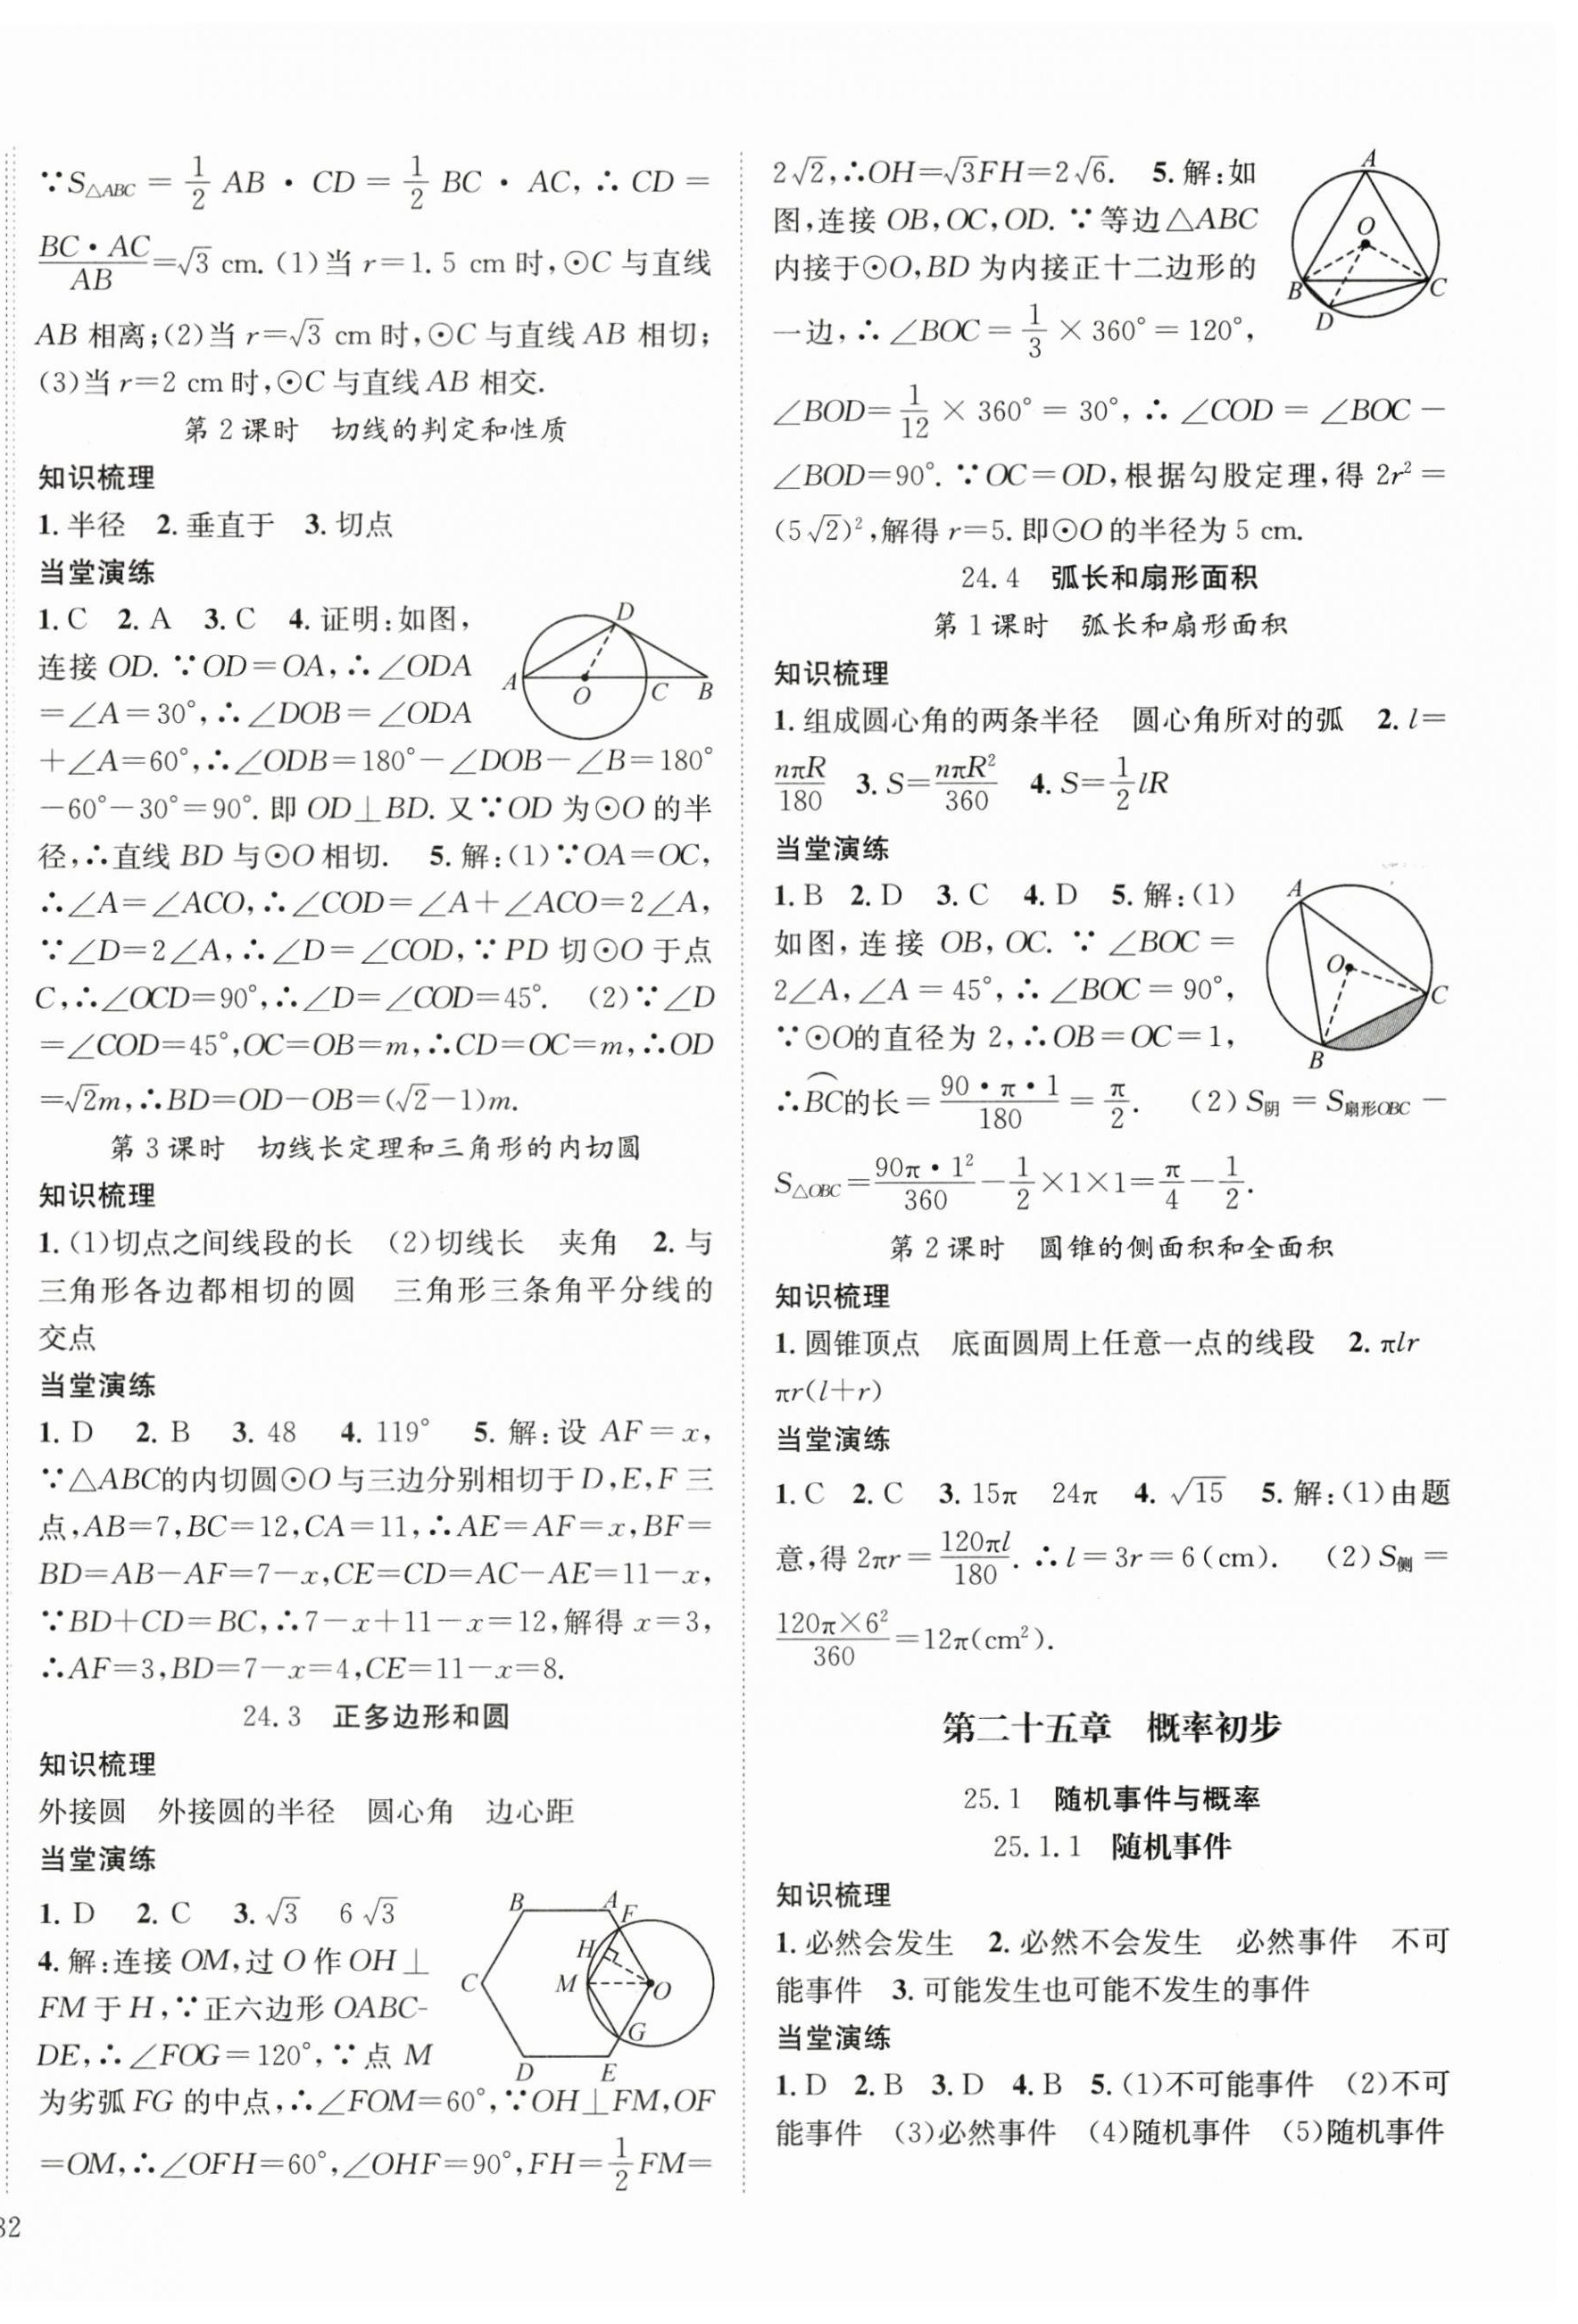 ∵S△ABC = 1/2 AB · CD = 1/2 BC · AC, ∴ CD =
BC·AC/AB=√3 cm. (1)当 r=1.5 cm 时,⊙C 与直线
AB 相离;(2)当 r=√3 cm 时,⊙C 与直线 AB 相切;
(3)当 r=2 cm 时,⊙C 与直线 AB 相交.
第 2 课时 切线的判定和性质
知识梳理
1. 半径 2. 垂直于 3. 切点
当堂演练
1. C 2. A 3. C 4. 证明:如图,
连接 OD. ∵OD=OA,∴∠ODA
=∠A=30°,∴∠DOB=∠ODA
+∠A=60°,∴∠ODB=180°-∠DOB-∠B=180°
-60°-30°=90°. 即 OD⊥BD. 又∵OD 为⊙O 的半
径,∴直线 BD 与⊙O 相切. 5. 解:(1)∵OA=OC,
∴∠A=∠ACO,∴∠COD=∠A+∠ACO=2∠A,
∵∠D=2∠A,∴∠D=∠COD,∵PD 切⊙O 于点
C,∴∠OCD=90°,∴∠D=∠COD=45°. (2)∵∠D
=∠COD=45°,OC=OB=m,∴CD=OC=m,∴OD
=√2m,∴BD=OD-OB=(√2-1)m.
第 3 课时 切线长定理和三角形的内切圆
知识梳理
1. (1)切点之间线段的长 (2)切线长 夹角 2. 与
三角形各边都相切的圆 三角形三条角平分线的
交点
当堂演练
1. D 2. B 3. 48 4. 119° 5. 解:设 AF=x,
∵△ABC的内切圆⊙O 与三边分别相切于 D,E,F 三
点,AB=7,BC=12,CA=11,∴AE=AF=x,BF=
BD=AB-AF=7-x,CE=CD=AC-AE=11-x,
∵BD+CD=BC,∴7-x+11-x=12,解得 x=3,
∴AF=3,BD=7-x=4,CE=11-x=8.
24.3 正多边形和圆
知识梳理
外接圆 外接圆的半径 圆心角 边心距
当堂演练
1. D 2. C 3. √3 6√3
4. 解:连接 OM,过 O 作 OH⊥
FM 于 H,∵正六边形 OABC-
DE,∴∠FOG=120°,∵点 M
为劣弧 FG 的中点,∴∠FOM=60°,∵OH⊥FM,OF
=OM,∴∠OFH=60°,∠OHF=90°,FH=1/2 FM=
D
A
O
C
B
B
A
F
H
C
M
O
G
D
E
32
2√2,∴OH=√3FH=2√6. 5. 解:如
图,连接 OB,OC,OD. ∵等边△ABC
内接于⊙O,BD 为内接正十二边形的
一边,∴∠BOC=1/3×360°=120°,
∠BOD=1/12×360°=30°,∴∠COD=∠BOC-
∠BOD=90°. ∵OC=OD,根据勾股定理,得 2r²=
(5√2)²,解得 r=5. 即⊙O 的半径为 5 cm.
A
O
B
C
D
24.4 弧长和扇形面积
第 1 课时 弧长和扇形面积
知识梳理
1. 组成圆心角的两条半径 圆心角所对的弧 2. l=
nπR/180 3. S=nπR²/360 4. S=1/2 lR
当堂演练
1. B 2. D 3. C 4. D 5. 解:(1)
如图,连接 OB,OC. ∵∠BOC=
2∠A,∠A=45°,∴∠BOC=90°,
∵⊙O的直径为 2,∴OB=OC=1,
∴⌒BC的长=90·π·1/180=π/2. (2)S阴=S扇形OBC-
S△OBC=90π·1²/360-1/2×1×1=π/4-1/2.
A
O
C
B
第 2 课时 圆锥的侧面积和全面积
知识梳理
1. 圆锥顶点 底面圆周上任意一点的线段 2. πlr
πr(l+r)
当堂演练
1. C 2. C 3. 15π 24π 4. √15 5. 解:(1)由题
意,得 2πr=120πl/180. ∴l=3r=6(cm). (2)S侧=
120π×6²/360=12π(cm²).
第二十五章 概率初步
25.1 随机事件与概率
25.1.1 随机事件
知识梳理
1. 必然会发生 2. 必然不会发生 必然事件 不可
能事件 3. 可能发生也可能不发生的事件
当堂演练
1. D 2. B 3. D 4. B 5. (1)不可能事件 (2)不可
能事件 (3)必然事件 (4)随机事件 (5)随机事件